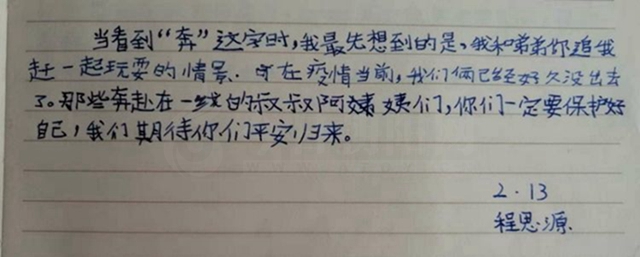 当看到“奔”这字时,我最先想到的是,我和弟弟你追我
赶一起玩耍的情景.可在疫情当前,我们俩已经好久没出去
了。那些奔赴在一线的叔叔阿姨姨们,你们一定要保护好
自己,我们期待你们平安归来。
2·13
程思源.